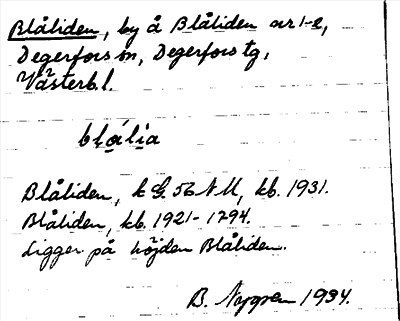 Blåliden, by å Blåliden nr 1-2,
Degerfors sn, Degerfors tg,
Västerb.l.
blália
Blåliden, k G. 56 NV, kb. 1931.
Blåliden, kb. 1921-1794.
Ligger på höjden Blåliden.
B. Nygren 1934.